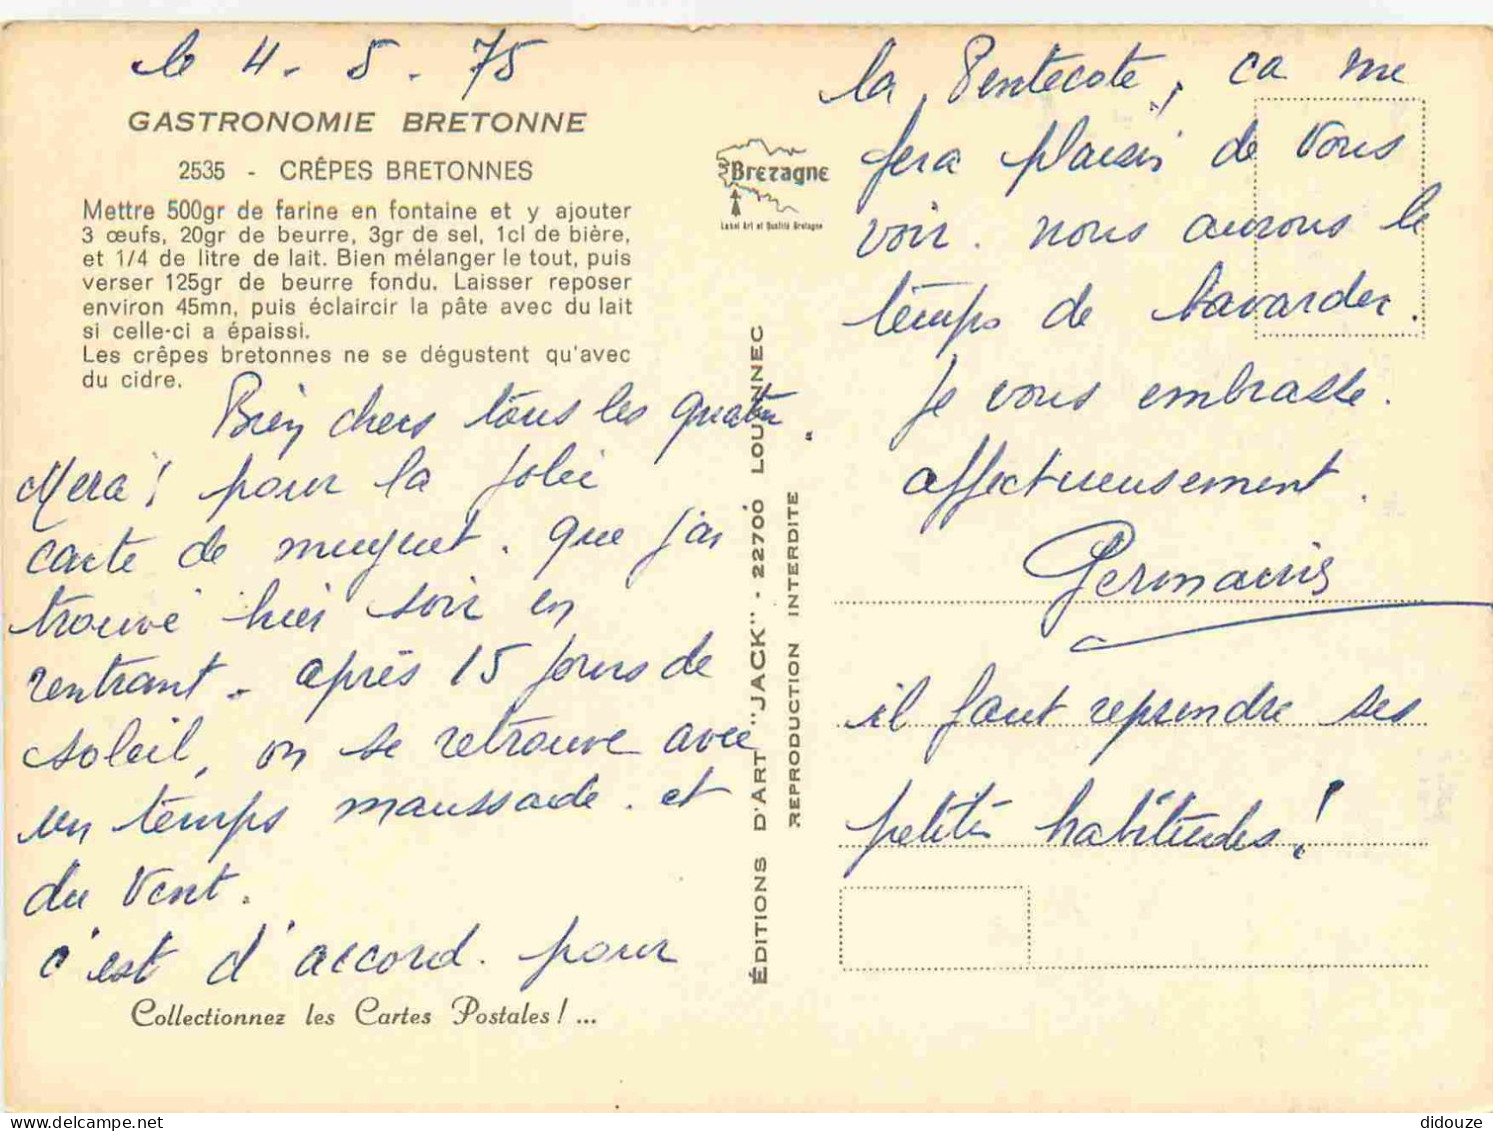 le 4 - 5 - 75
GASTRONOMIE BRETONNE
2535 - CRÊPES BRETONNES
Mettre 500gr de farine en fontaine et y ajouter
3 œufs, 20gr de beurre, 3gr de sel, 1cl de bière,
et 1/4 de litre de lait. Bien mélanger le tout, puis
verser 125gr de beurre fondu. Laisser reposer
environ 45mn, puis éclaircir la pâte avec du lait
si celle-ci a épaissi.
Les crêpes bretonnes ne se dégustent qu'avec
du cidre.
Bien chers tous les quatre.
Merci pour la jolie
carte de muguet. que j'ai
trouvé hier soir en
rentrant. après 15 jours de
soleil, on se retrouve avec
un temps maussade. et
du vent.
c'est d'accord. pour
Collectionnez les Cartes Postales ! ...
Bretagne
Label Art et Qualité Bretagne
ÉDITIONS D'ART "JACK" - 22700 LOUANNEC
REPRODUCTION INTERDITE
la Pentecote, ca me
fera plaisir de vous
voir. nous aurons le
temps de bavarder.
je vous embrasse.
affectueusement.
Germaine
il faut reprendre ses
petites habitudes !
didouze